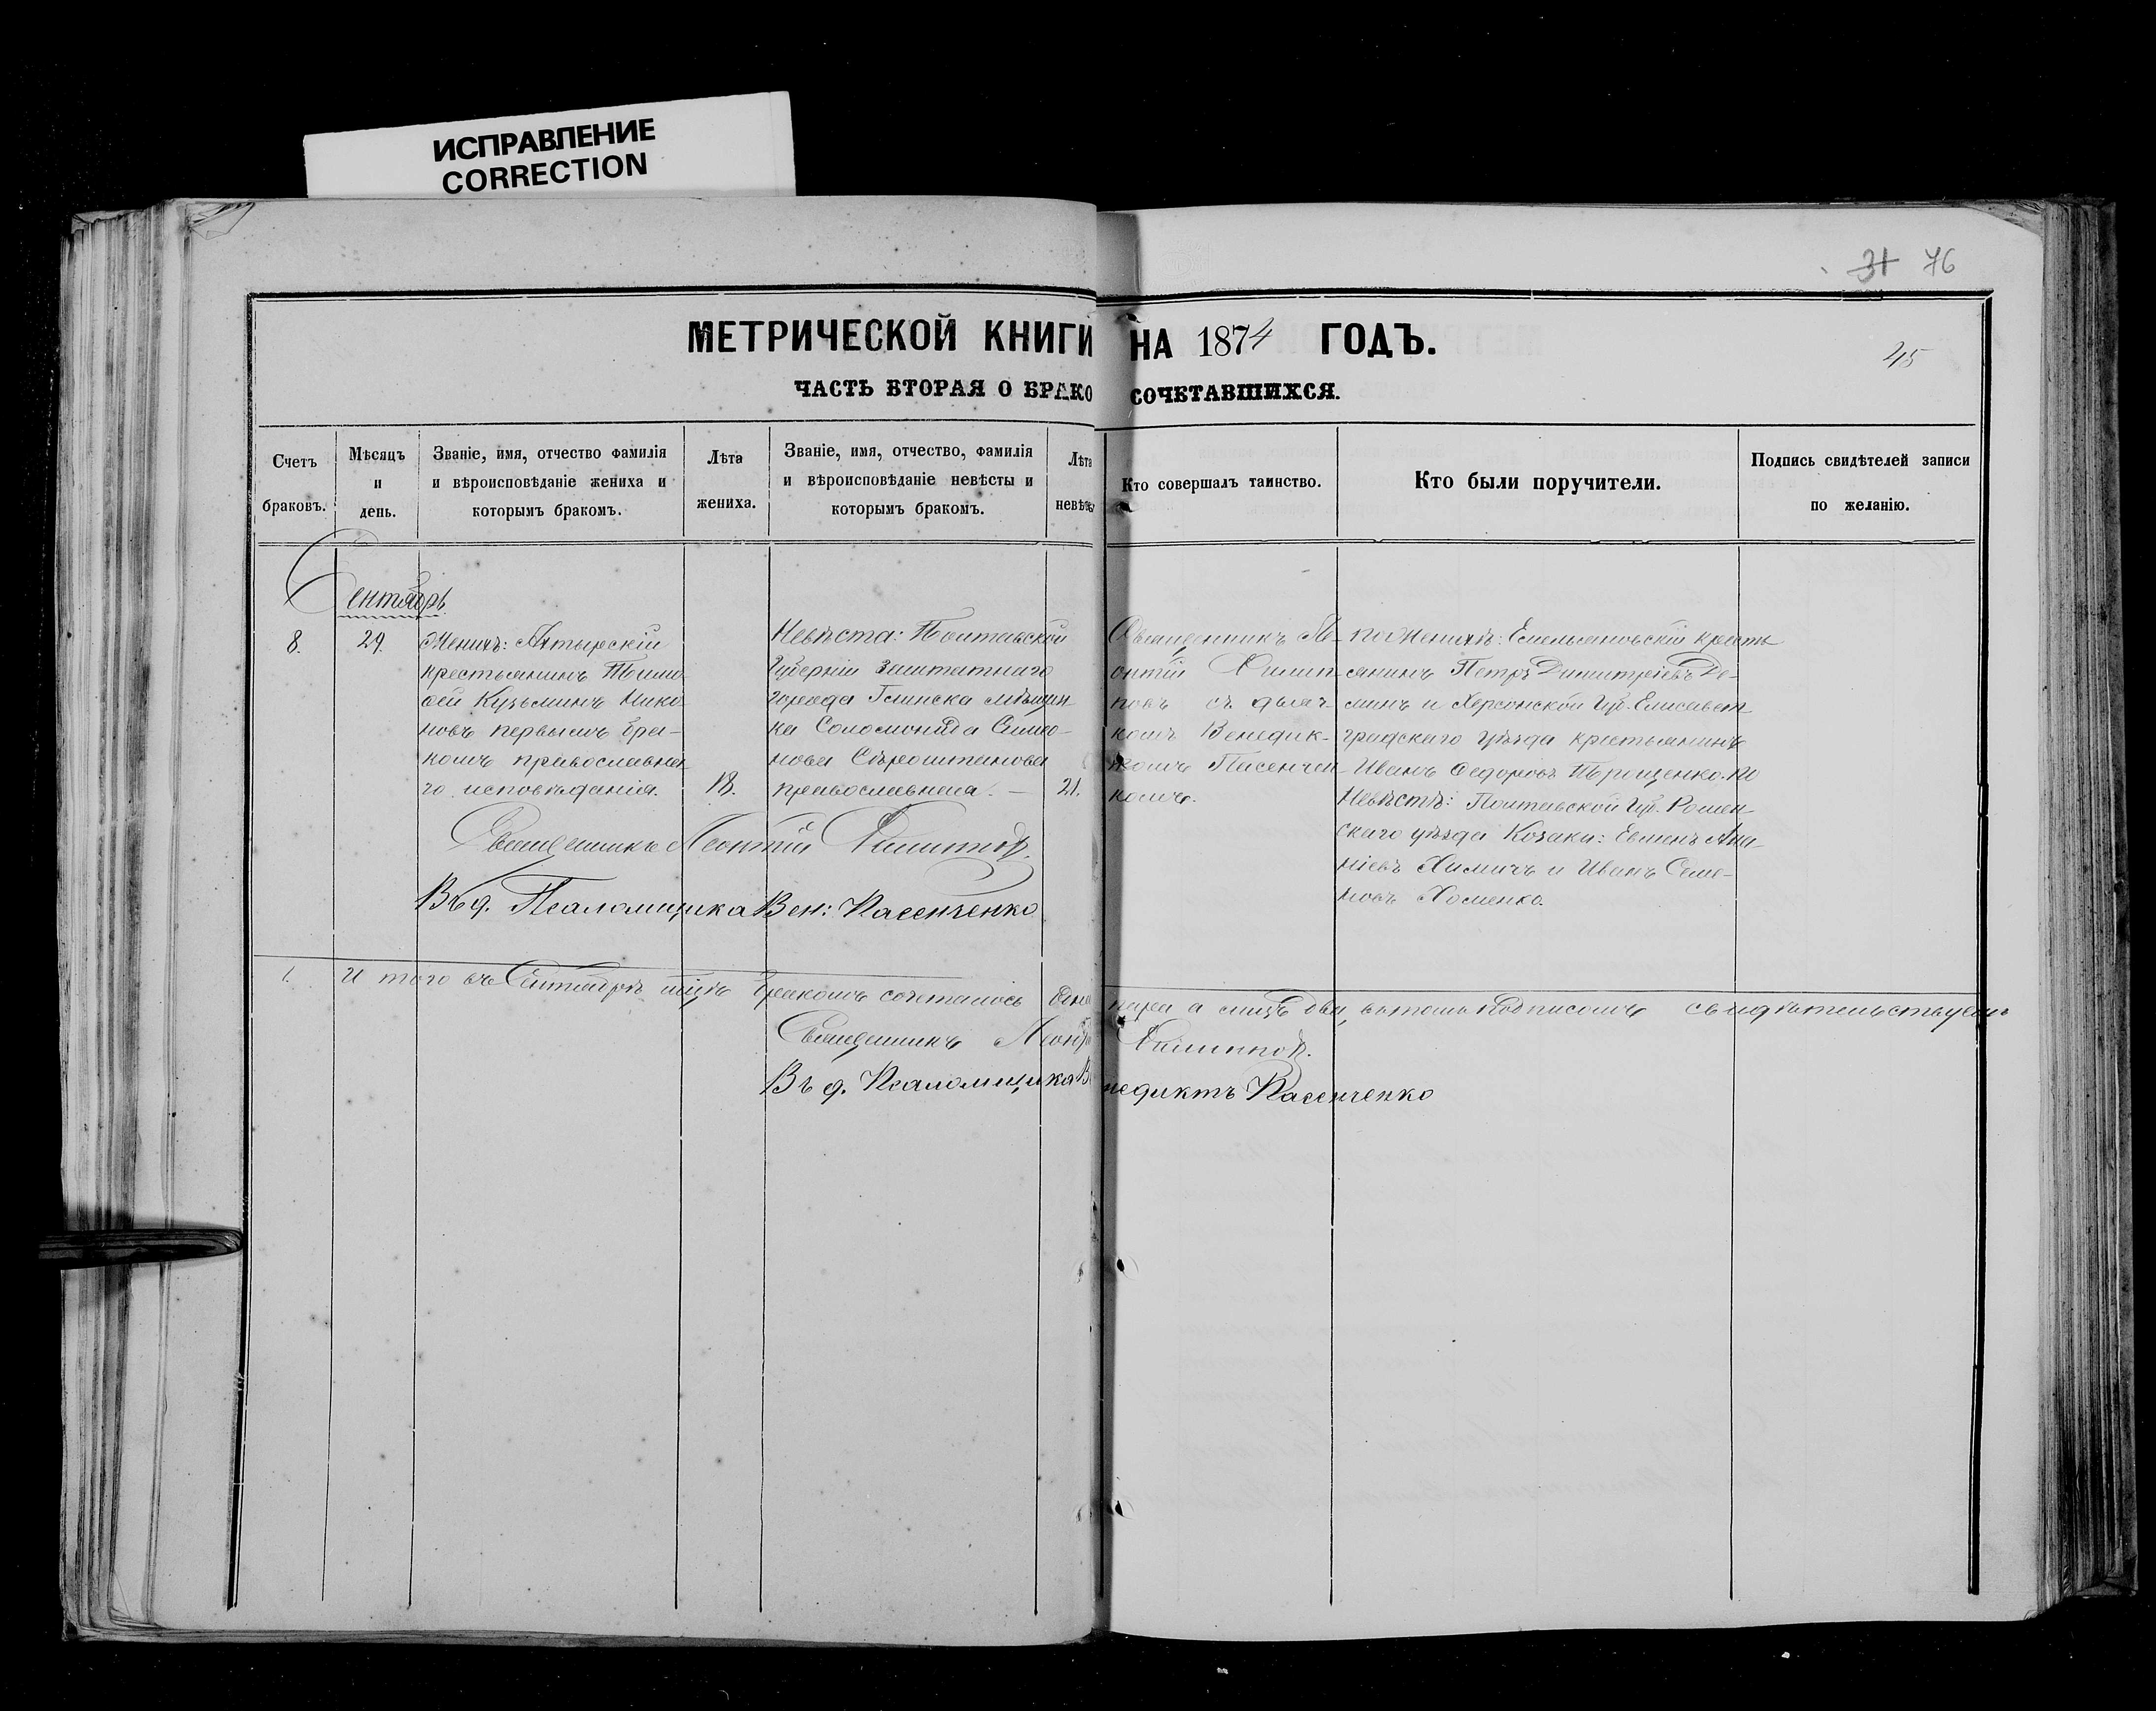 ИСПРАВЛЕНИЕ
CORRECTION
31 76
МЕТРИЧЕСКОЙ КНИГИ НА 1874 ГОДЪ.
45
ЧАСТЬ ВТОРАЯ О БРАКОСОЧЕТАВШИХСЯ.
Счетъ браковъ.
Мѣсяцъ и день.
Званіе, имя, отчество фамилія и вѣроисповѣданіе жениха и которымъ бракомъ.
Лѣта жениха.
Званіе, имя, отчество, фамилія и вѣроисповѣданіе невѣсты и которымъ бракомъ.
Лѣта невѣсты
Кто совершалъ таинство.
Кто были поручители.
Подпись свидѣтелей записи по желанію.
Сентябрь.
8.
29.
Женихъ: Ахтырскій
крестьянинъ Тимо
ѳей Кузьминъ Нико
новъ первымъ бра-
комъ православна
го исповѣданія.
18.
Невѣста: Полтавской
Губерніи заштатнаго
города Глинска мѣщан
ка Соломонида Симо-
нова Сѣроштанова
православная. —
21.
Священникъ Ле-
онтій Филип-
повъ съ дьяч-
комъ Венедик-
томъ Пасенчен-
комъ.
по Женихѣ: Емельяновскій кресть
янинъ Петръ Димитріевъ Де-
минъ и Херсонской Губ. Елисавет
градскаго уѣзда крестьянинъ
Иванъ Ѳедоровъ Трощенко. по
Невѣстѣ: Полтавской Губ. Ромен
скаго уѣзда Козаки: Евменъ Ана-
ніевъ Химичъ и Иванъ Семе-
новъ Хоменко.
Священникъ Леонтій Филиповъ.
Въ д. Псаломщика Вен: Пасенченко
1. И того въ Сентябрѣ мцѣ бракомъ сочеталось одна пара а лицъ два, въ томъ подписомъ свидѣтельствуемъ
Священникъ Леонтій Филипповъ.
Въ д. Псаломщика Венедиктъ Пасенченко